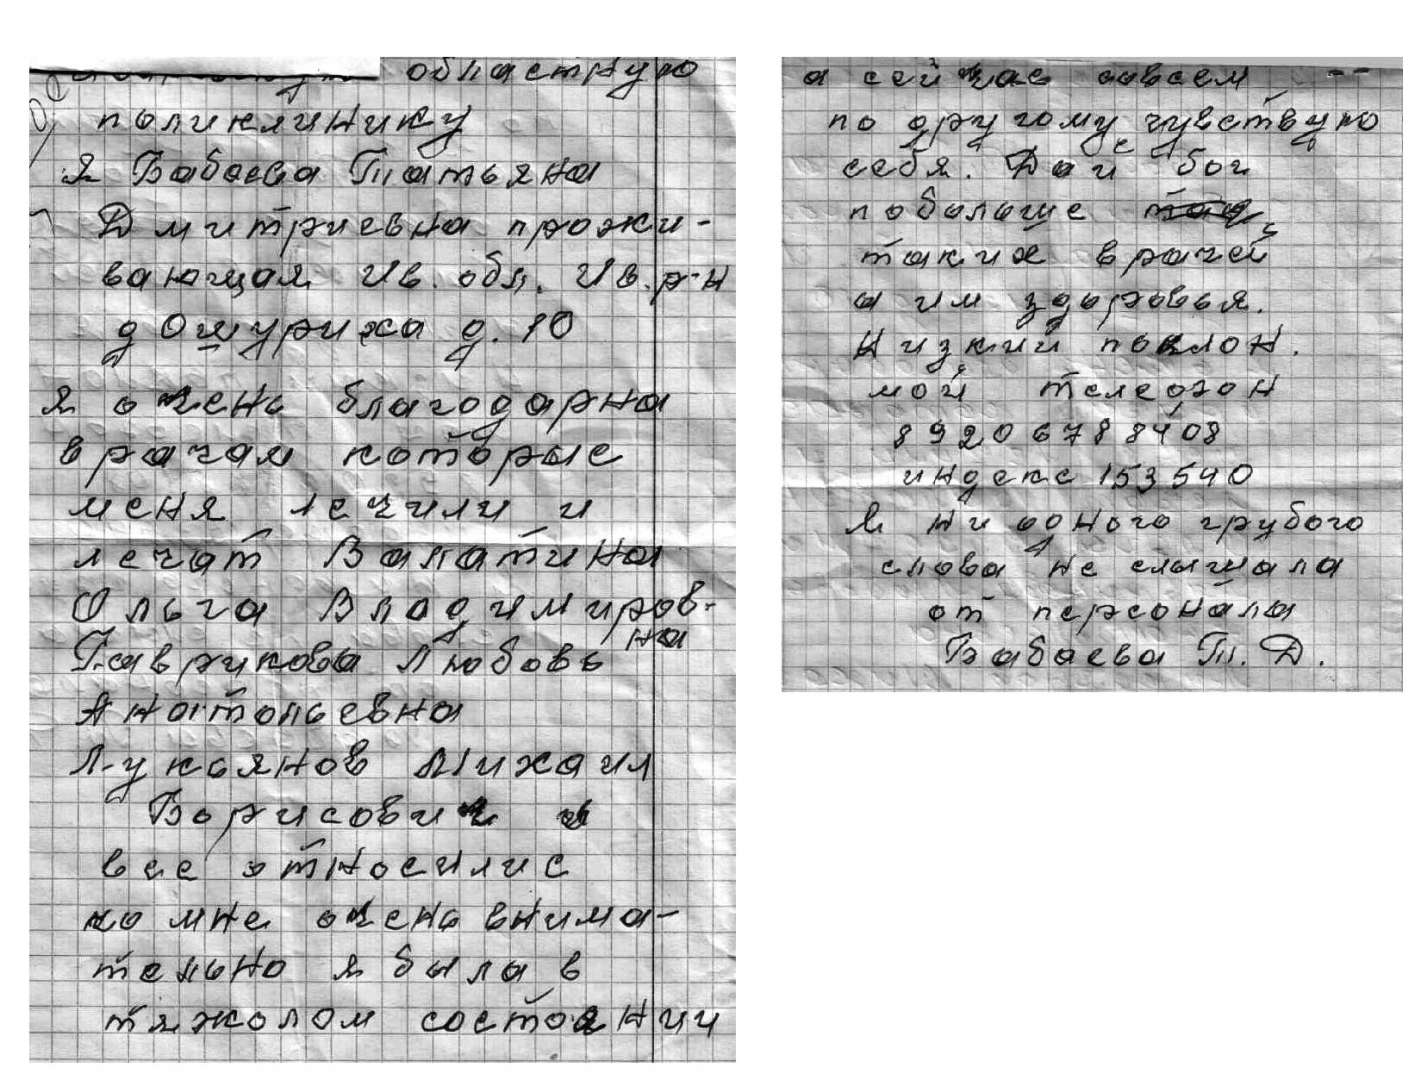 областную
поликлинику
я Бабаева Татьяна
Дмитриевна прожи-
вающая Ив. обл. Ив. р-н
д Ошуриха д. 10
я очень благодарна
врачам которые
меня лечили и
лечат Валатина
Ольга Владимиров-
на
Гаврикова Любовь
Анатольевна
Лукьянов Михаил
Борисович и
все относилис
ко мне очень внима-
тельно я была в
тяжолом состоянии
а сейчас совсем --
по другому чувствую
себя. Дай бог
побольше
таких врачей
а им здоровья.
Низкий поклон.
мой телефон
89206788408
индекс 153540
Я ни одного грубого
слова не слышала
от персонала
Бабаева Т. Д.